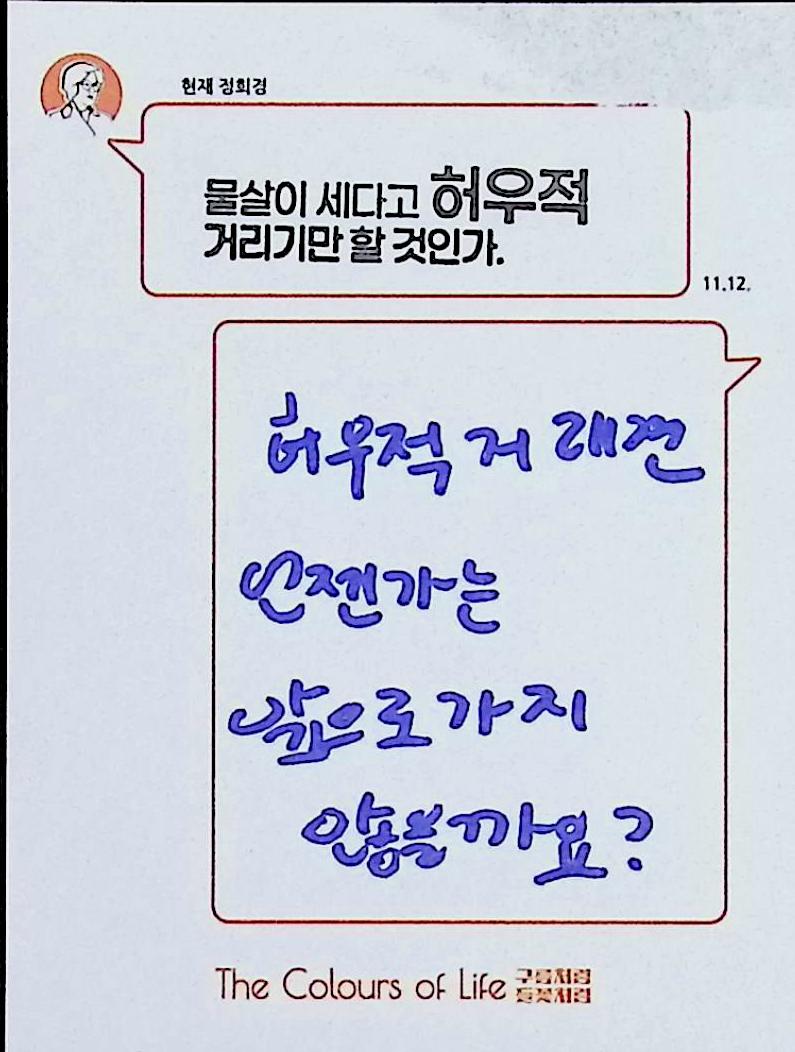 현재 정희경
물살이 세다고 허우적
거리기만 할 것인가.
11.12.
허우적 거 래면
언젠가는
앞으로 가지
않을까요?
The Colours of Life 구름처럼
들꽃처럼